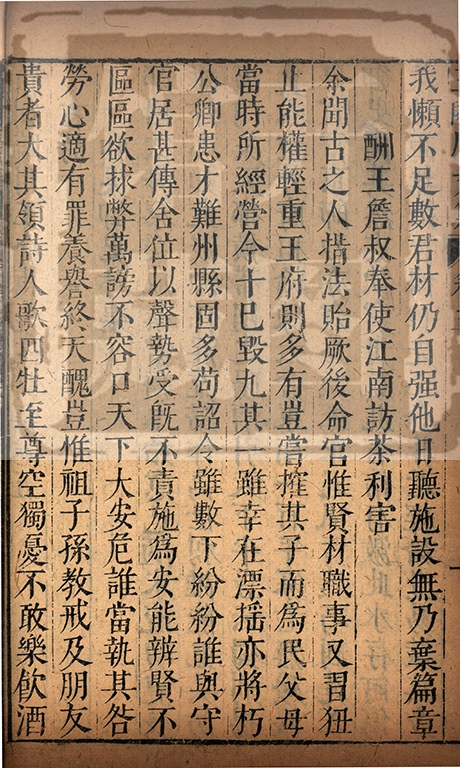 我懶不足數君材仍自强他日聽施設無乃棄篇章
酬王詹叔奉使江南訪茶利害
余聞古之人措法貽厥後命官惟賢材職事又習狃
止能權輕重王府則多有豈嘗搉其子而爲民父母
當時所經營今十已毀九其一雖幸在漂摇亦將朽
公卿患才難州縣固多苟詔令雖數下紛紛誰與守
官居甚傳舍位以聲勢受旣不責施爲安能辨賢不
區區欲捄弊萬謗不容口天下大安危誰當執其咎
勞心適有罪養譽終天醜豈惟祖子孫教戒及朋友
貴者大其領詩人歌四牡至尊空獨憂不敢樂飮酒